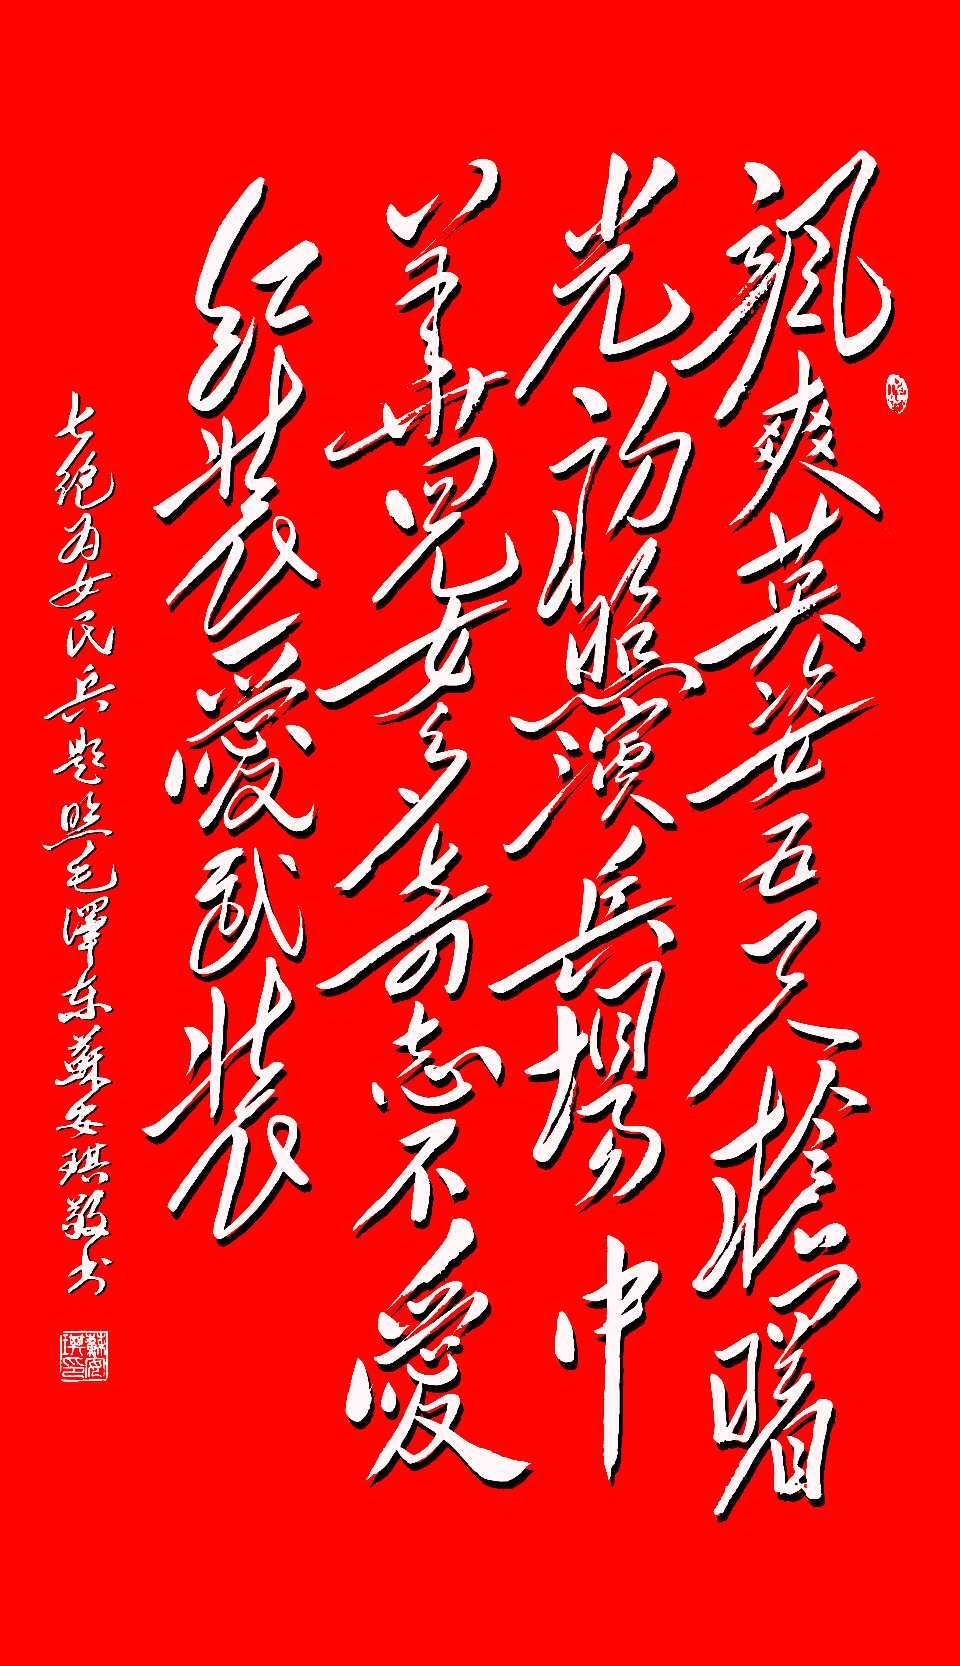 颯爽英姿五尺槍曙
光初照演兵場中
華兒女多奇志不愛
紅裝愛武裝
七絕为女民兵题照毛澤东蘇安琪敬书
蘇安琪印